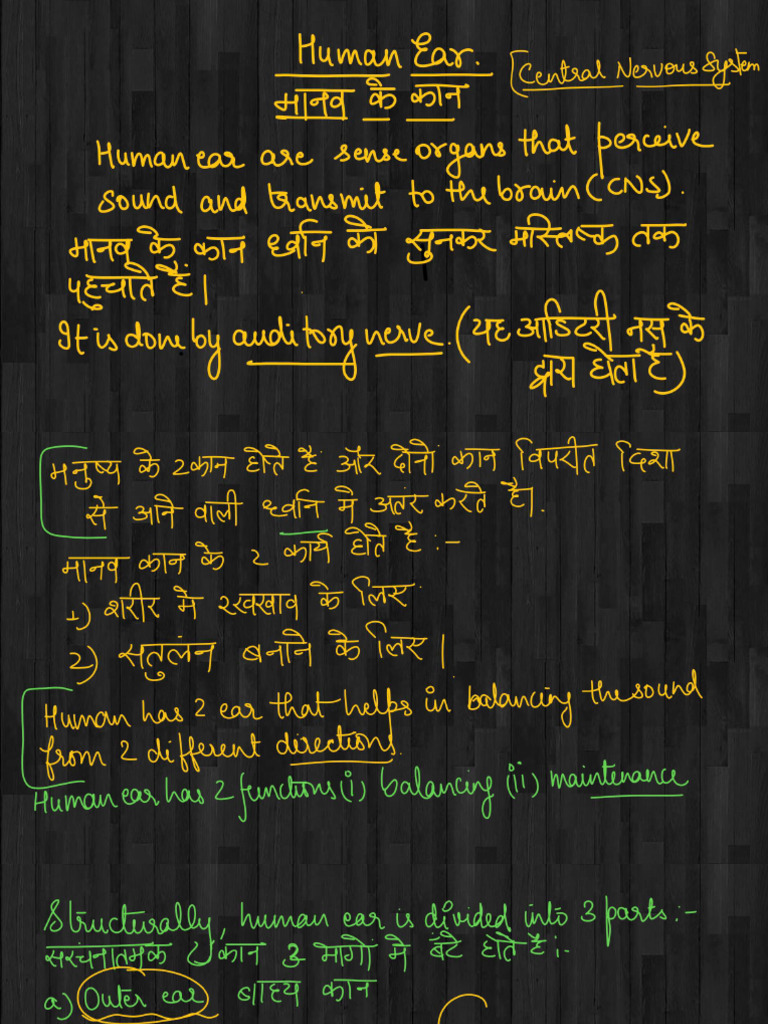 Human Ear.
[Central Nervous System
मानव के कान
Human ear are sense organs that perceive
sound and transmit to the brain (CNS).
मानव के कान ध्वनि को सुनकर मस्तिष्क तक
पहुचाते है।
It is done by auditory nerve. (यह आडिटरी नस के
द्वारा होता है)
मनुष्य के 2 कान होते है और दोनो कान विपरीत दिशा
से आने वाली ध्वनि मे अतंर करते है।
मानव कान के 2 कार्य होते है :-
1) शरीर मे रखखाव के लिए
2) सतुलंन बनाने के लिए।
Human has 2 ear that helps in balancing the sound
from 2 different directions.
Human ear has 2 functions (i) balancing (ii) maintenance
Structurally, human ear is divided into 3 parts :-
सरंचनातमक कान 3 भागो मे बँटे होते है :-
a) Outer ear बाह्य कान